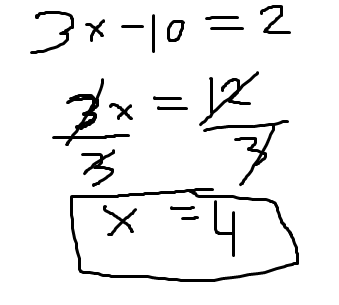 3x - 10 = 2
3x = 12
3 3
x = 4